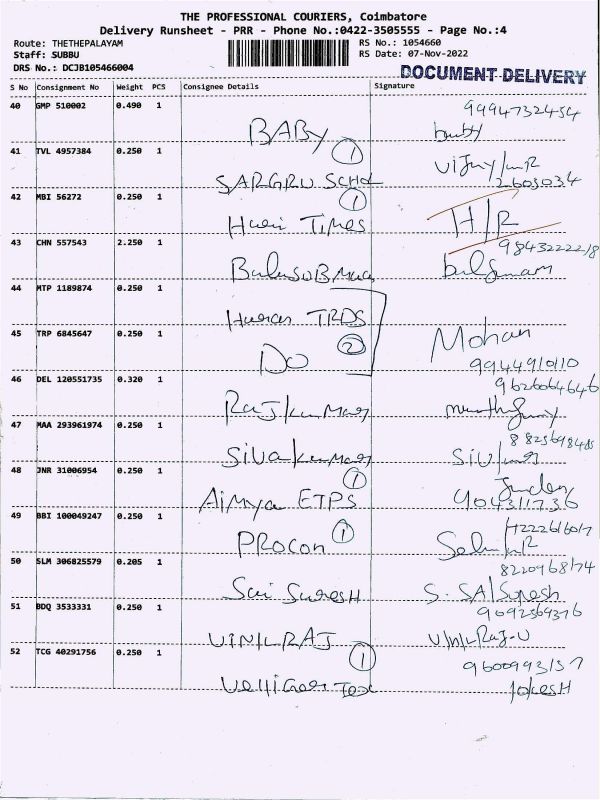 THE PROFESSIONAL COURIERS, Coimbatore
Delivery Runsheet - PRR - Phone No.:0422-3505555 - Page No.:4
Route: THETHEPALAYAM
Staff: SUBBU
DRS No.: DCJB105466004
RS No.: 1054660
RS Date: 07-Nov-2022
DOCUMENT DELIVERY
S No Consignment No Weight PCS Consignee Details Signature
40 GMP 510002 0.490 1
9994732454
BABY
41 TVL 4957384 0.250 1
1
2603034
42 MBI 56272 0.250 1
1
Times H/R
43 CHN 557543 2.250 1
9843222218
44 MTP 1189874 0.250 1
TRDS
45 TRP 6845647 0.250 1
Mohan
DO 2
9944910110
46 DEL 120551735 0.320 1
9626064646
Rajkumar
47 MAA 293961974 0.250 1
Sivakumar
48 JNR 31006954 0.250 1
1
ETPS 904311736
49 BBI 100049247 0.250 1
PROCON 1
50 SLM 306825579 0.205 1
8220968174
Sai SuresH
51 BDQ 3533331 0.250 1
9092569376
VINILRAJ
52 TCG 40291756 0.250 1
1
9600993157
JokesH